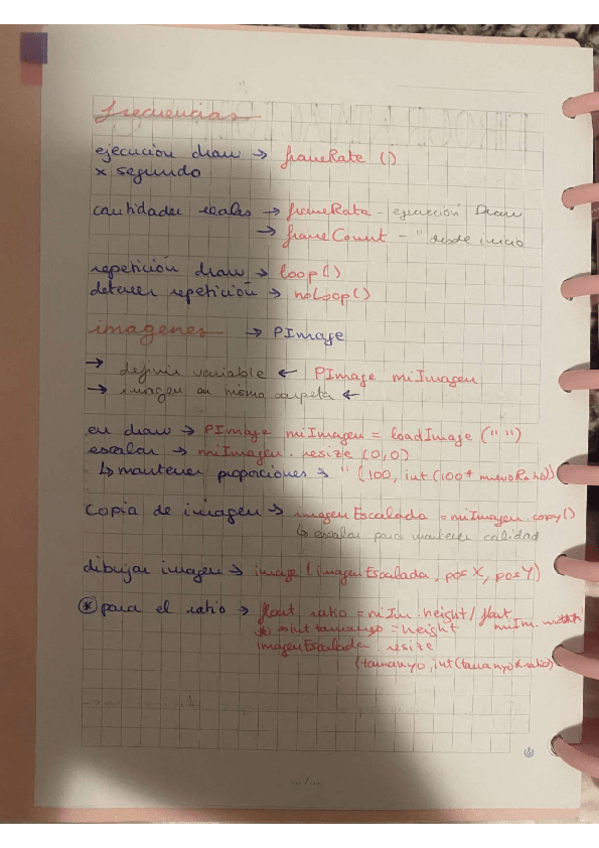 frecuencias
ejecución draw → frameRate ()
x segundo
cantidades reales → frameRate - ejecución Draw
→ frameCount - " desde inicio
repetición draw → loop()
detener repetición → noLoop()
imagenes → PImage
→ definir variable ← PImage miImagen
→ imagen en misma carpeta ←
en draw → PImage miImagen = loadImage (" ")
escalar → miImagen.resize (0,0)
↳ mantener proporciones → " (100, int (100*
Copia de imagen → imagenEscalada = miImagen.copy()
↳ escalar para mantener calidad
dibujar imagen → image (imagenEscalada, posX, posY)
* para el ratio → float ratio = miIm.height / float
miIm.width
→ int tamanyo = height
imagenEscalada.resize
(tamanyo, int(tamanyo*ratio)
.../...